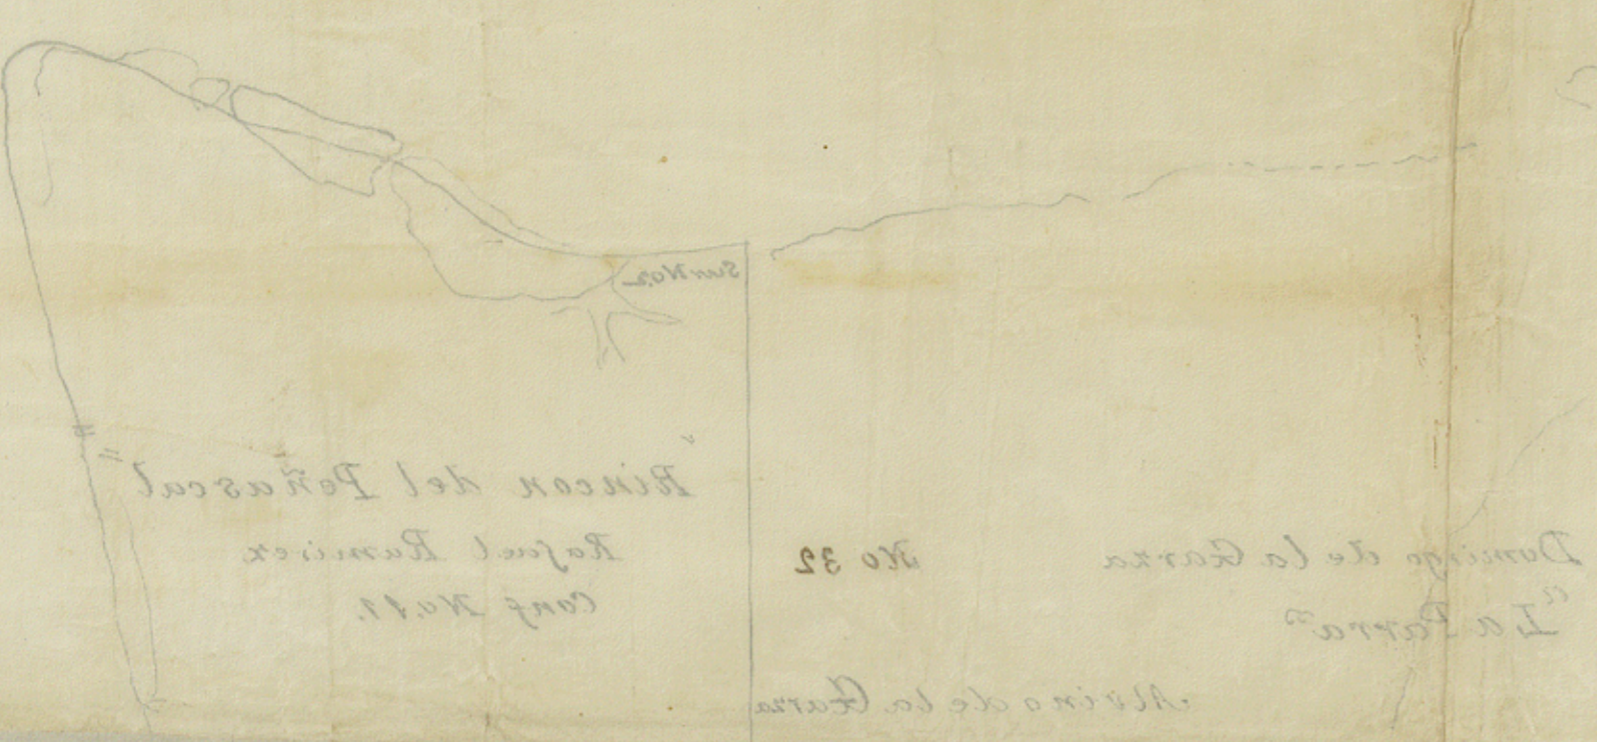 Sur No 2
"Rincon del Peñascal"
Rafael Ramirez
Conf No. 11.
No 32
Domingo de la Garza
"La Parra"
Alvino de la Garza